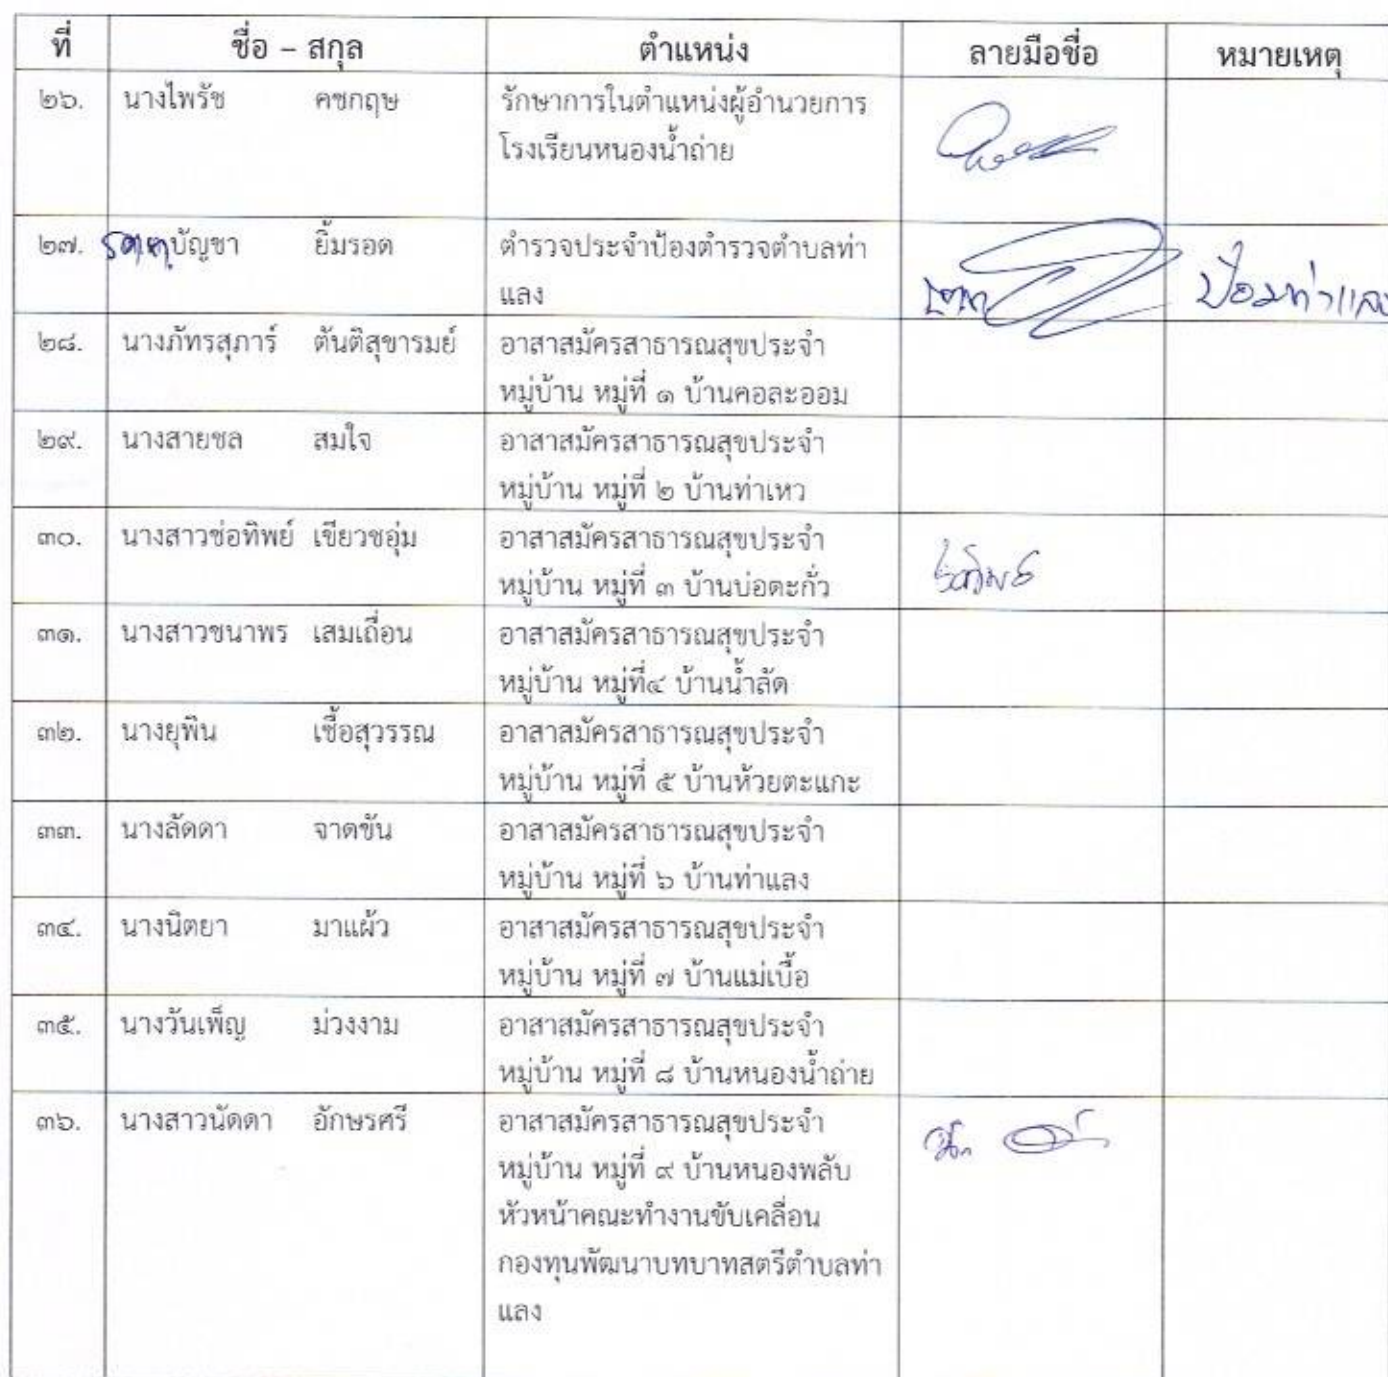 ที่ ชื่อ – สกุล ตำแหน่ง ลายมือชื่อ หมายเหตุ
๒๖. นางไพรัช คชกฤษ รักษาการในตำแหน่งผู้อำนวยการ
โรงเรียนหนองน้ำถ่าย
๒๗. บัญชา ยิ้มรอด ตำรวจประจำป้องตำรวจตำบลท่า
แลง ป้อมท่าแลง
๒๘. นางภัทรสุภาร์ ตันติสุขารมย์ อาสาสมัครสาธารณสุขประจำ
หมู่บ้าน หมู่ที่ ๑ บ้านคอละออม
๒๙. นางสายชล สมใจ อาสาสมัครสาธารณสุขประจำ
หมู่บ้าน หมู่ที่ ๒ บ้านท่าเหว
๓๐. นางสาวช่อทิพย์ เขียวชอุ่ม อาสาสมัครสาธารณสุขประจำ
หมู่บ้าน หมู่ที่ ๓ บ้านบ่อตะกั่ว
๓๑. นางสาวชนาพร เสมเถื่อน อาสาสมัครสาธารณสุขประจำ
หมู่บ้าน หมู่ที่๔ บ้านน้ำลัด
๓๒. นางยุพิน เชื้อสุวรรณ อาสาสมัครสาธารณสุขประจำ
หมู่บ้าน หมู่ที่ ๕ บ้านห้วยตะแกะ
๓๓. นางลัดดา จาดขัน อาสาสมัครสาธารณสุขประจำ
หมู่บ้าน หมู่ที่ ๖ บ้านท่าแลง
๓๔. นางนิตยา มาแผ้ว อาสาสมัครสาธารณสุขประจำ
หมู่บ้าน หมู่ที่ ๗ บ้านแม่เบื้อ
๓๕. นางวันเพ็ญ ม่วงงาม อาสาสมัครสาธารณสุขประจำ
หมู่บ้าน หมู่ที่ ๘ บ้านหนองน้ำถ่าย
๓๖. นางสาวนัดดา อักษรศรี อาสาสมัครสาธารณสุขประจำ
หมู่บ้าน หมู่ที่ ๙ บ้านหนองพลับ
หัวหน้าคณะทำงานขับเคลื่อน
กองทุนพัฒนาบทบาทสตรีตำบลท่า
แลง